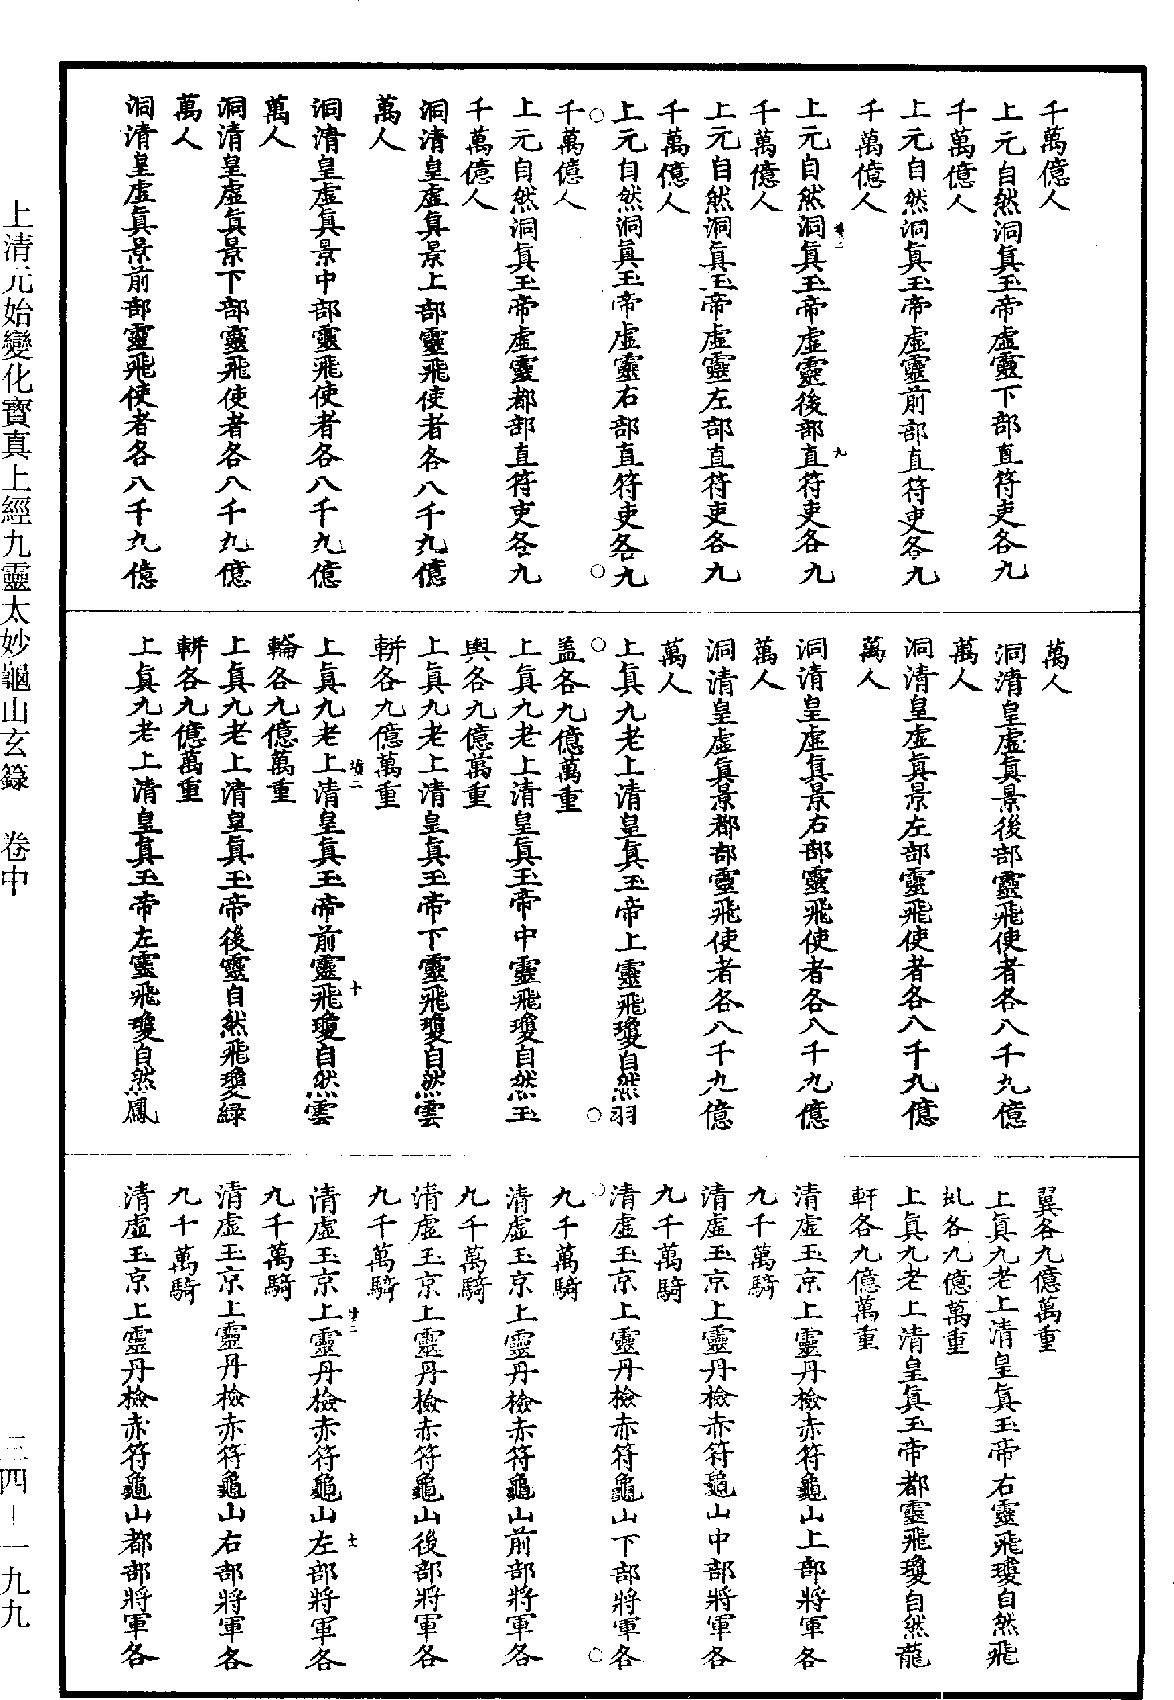 千萬億人
上元自然洞真玉帝虛靈下部直符吏各九
千萬億人
上元自然洞真玉帝虛靈前部直符吏各九
千萬億人
上元自然洞真玉帝虛靈後部直符吏各九
千萬億人
上元自然洞真玉帝虛靈左部直符吏各九
千萬億人
上元自然洞真玉帝虛靈右部直符吏各九
千萬億人
上元自然洞真玉帝虛靈都部直符吏各九
千萬億人
洞清皇虛真景上部靈飛使者各八千九億
萬人
洞清皇虛真景中部靈飛使者各八千九億
萬人
洞清皇虛真景下部靈飛使者各八千九億
萬人
洞清皇虛真景前部靈飛使者各八千九億
萬人
洞清皇虛真景後部靈飛使者各八千九億
萬人
洞清皇虛真景左部靈飛使者各八千九億
萬人
洞清皇虛真景右部靈飛使者各八千九億
萬人
洞清皇虛真景都部靈飛使者各八千九億
萬人
上真九老上清皇真玉帝上靈飛瓊自然羽
蓋各九億萬重
上真九老上清皇真玉帝中靈飛瓊自然玉
輿各九億萬重
上真九老上清皇真玉帝下靈飛瓊自然雲
輧各九億萬重
上真九老上清皇真玉帝前靈飛瓊自然雲
輪各九億萬重
上真九老上清皇真玉帝後靈自然飛瓊綠
輧各九億萬重
上真九老上清皇真玉帝左靈飛瓊自然鳳
翼各九億萬重
上真九老上清皇真玉帝右靈飛瓊自然飛
虬各九億萬重
上真九老上清皇真玉帝都靈飛瓊自然龍
軒各九億萬重
清虛玉京上靈丹檢赤符龜山上部將軍各
九千萬騎
清虛玉京上靈丹檢赤符龜山中部將軍各
九千萬騎
清虛玉京上靈丹檢赤符龜山下部將軍各
九千萬騎
清虛玉京上靈丹檢赤符龜山前部將軍各
九千萬騎
清虛玉京上靈丹檢赤符龜山後部將軍各
九千萬騎
清虛玉京上靈丹檢赤符龜山左部將軍各
九千萬騎
清虛玉京上靈丹檢赤符龜山右部將軍各
九千萬騎
清虛玉京上靈丹檢赤符龜山都部將軍各
上清元始變化寶真上經九靈太妙龜山玄籙 卷中
三四—一九九